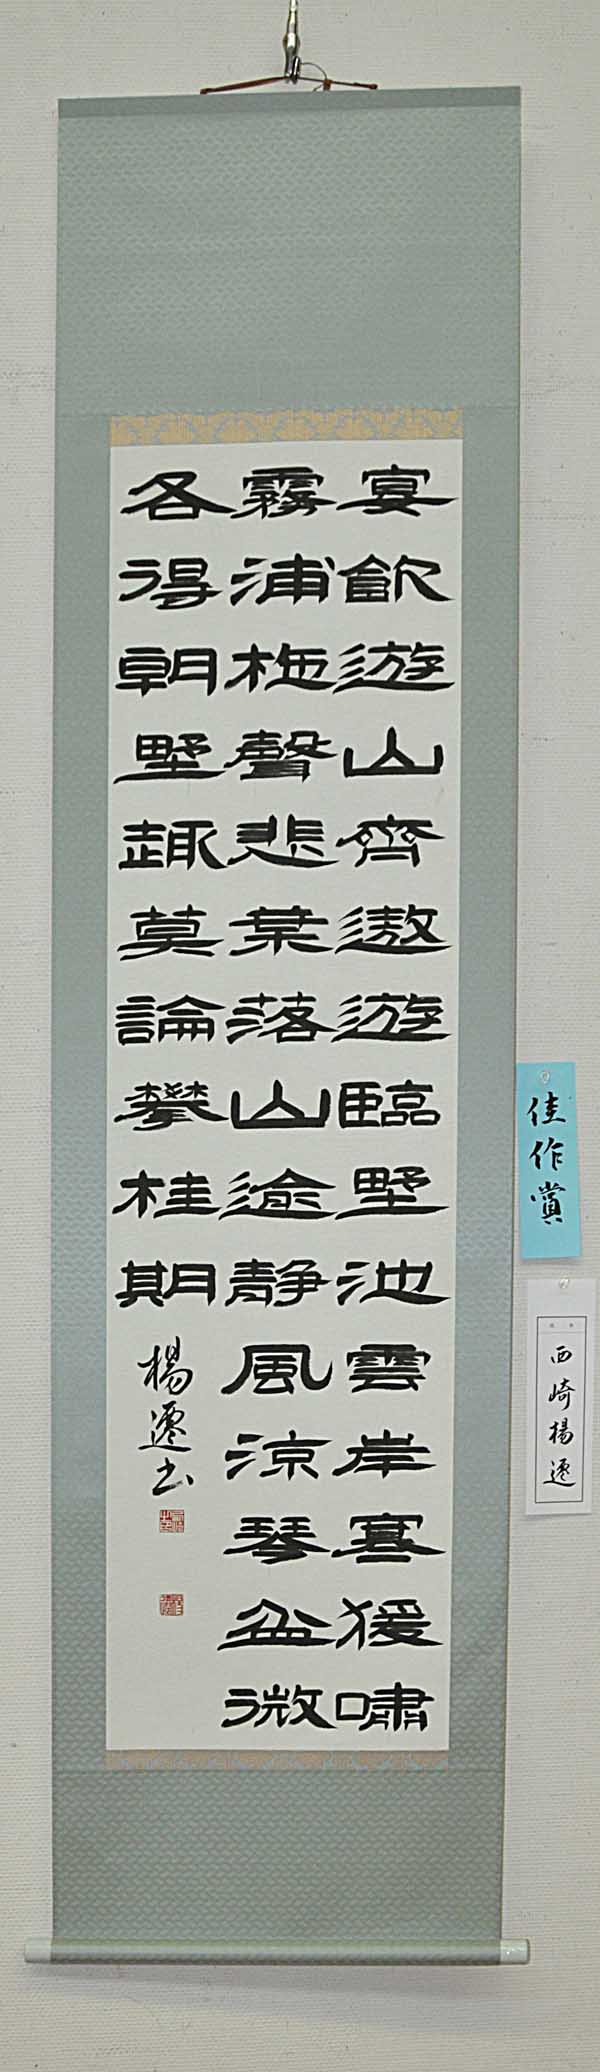 宴飲遊山齊遨遊臨野池雲岸寒猨嘯
霧浦柂聲悲葉落山逾静風涼琴益微
各得朝野趣莫論攀桂期
楊遷书
佳作賞
西崎楊遷